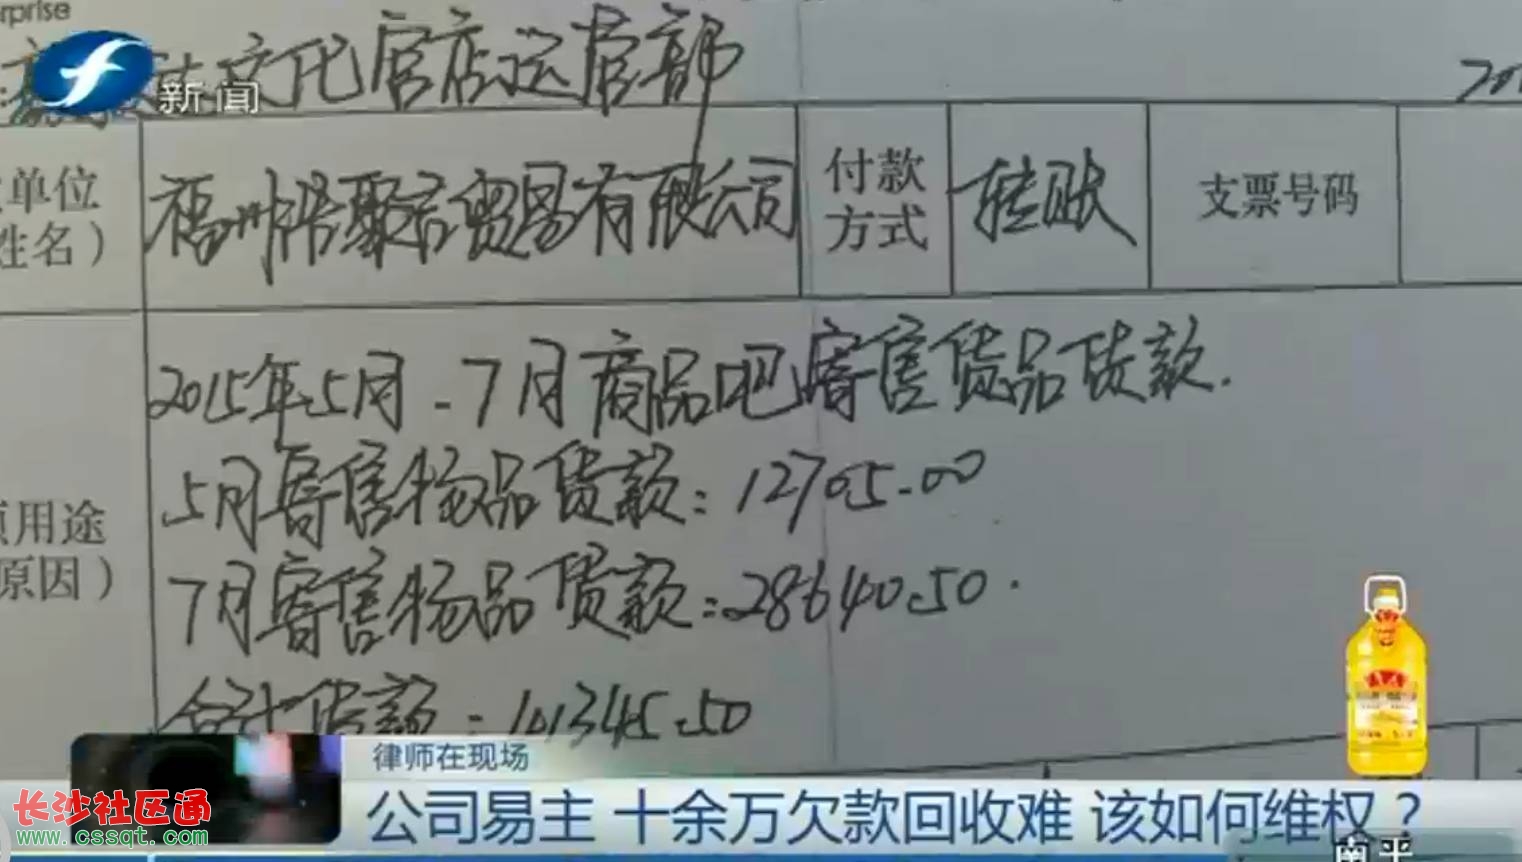 rprise
文化官店运营部
新闻
201
单位
姓名）
福州浩聚信贸易有限公司
付款
方式
转账
支票号码
2015年5月-7月商品吧寄售货品货款.
5月寄售物品货款：12705.00
7月寄售物品货款：28640.50.
用途
原因）
合计货款：41345.50
律师在现场
公司易主 十余万欠款回收难 该如何维权？
长沙社区通
www.cssqt.com
南平